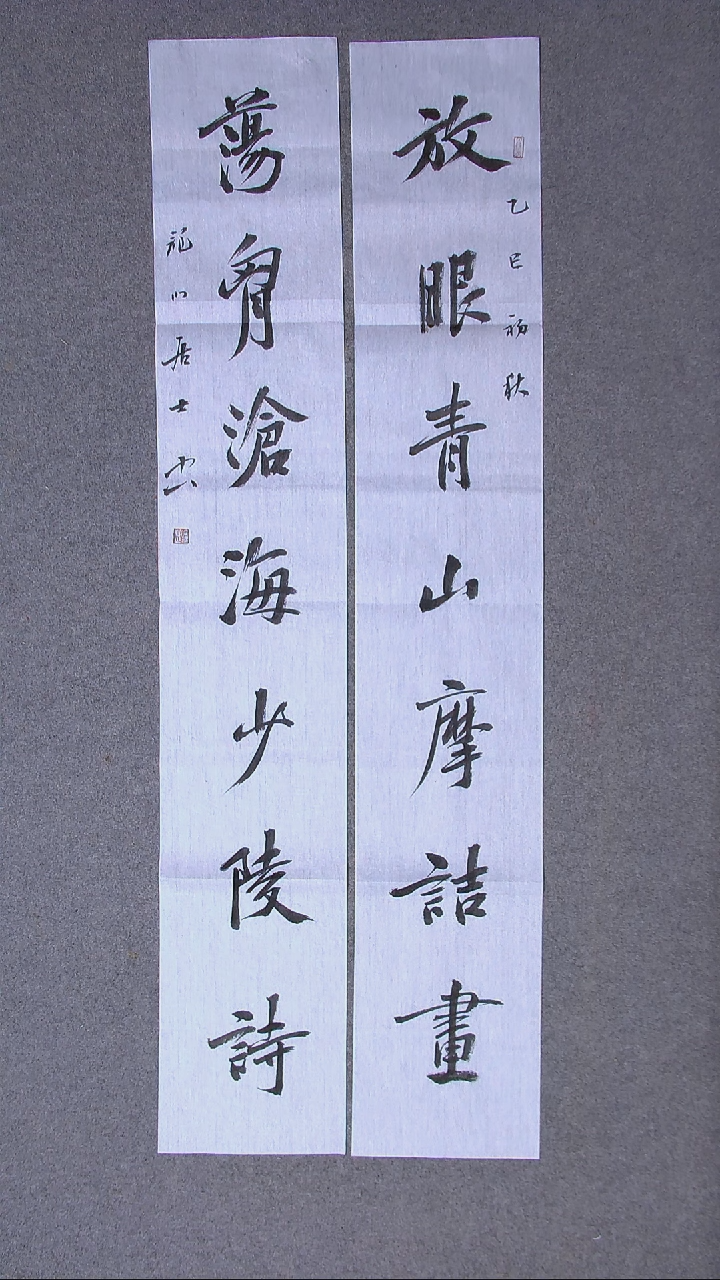 放眼青山摩詰畫
乙巳初秋
蕩胷滄海少陵詩
居士書